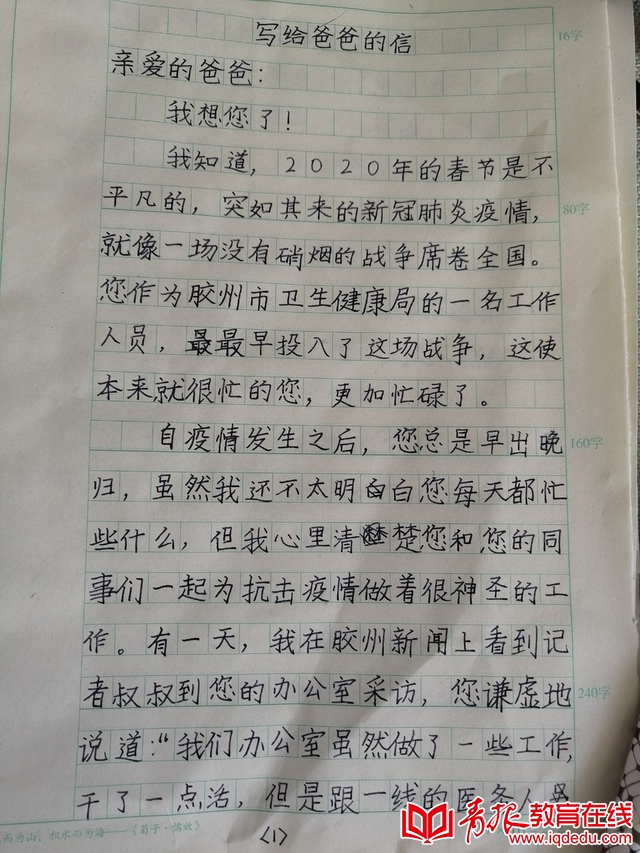 写给爸爸的信
16字
亲爱的爸爸：
我想您了！
我知道，2020年的春节是不
平凡的，突如其来的新冠肺炎疫情，
80字
就像一场没有硝烟的战争席卷全国。
您作为胶州市卫生健康局的一名工作
人员，最最早投入了这场战争，这使
本来就很忙的您，更加忙碌了。
自疫情发生之后，您总是早出晚
160字
归，虽然我还不太明白您每天都忙
些什么，但我心里清楚您和您的同
事们一起为抗击疫情做着很神圣的工
作。有一天，我在胶州新闻上看到记
者叔叔到您的办公室采访，您谦虚地
240字
说道：“我们办公室虽然做了一些工作，
干了一点活，但是跟一线的医务人员
而为山，积水而为海——《荀子·儒效》
〈1〉
青报教育在线
www.iqdedu.com